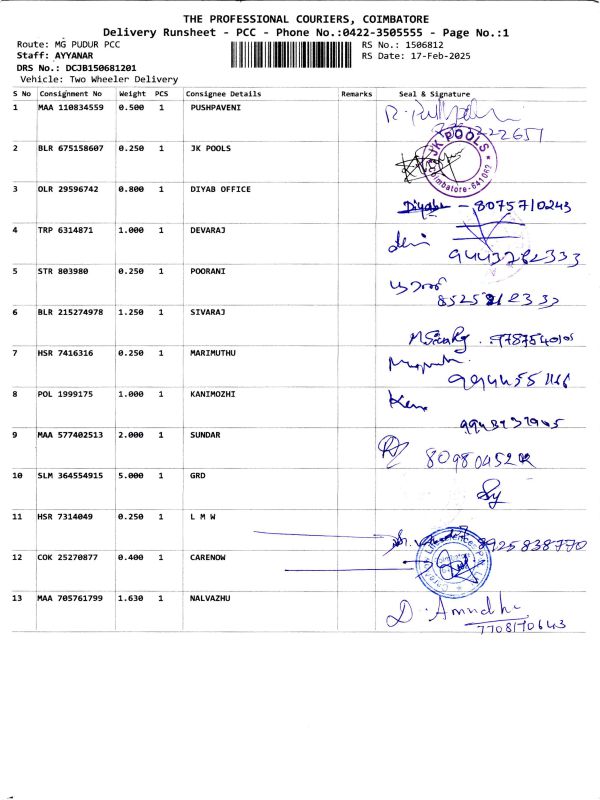 THE PROFESSIONAL COURIERS, COIMBATORE
Delivery Runsheet - PCC - Phone No.:0422-3505555 - Page No.:1
Route: MG PUDUR PCC RS No.: 1506812
Staff: AYYANAR RS Date: 17-Feb-2025
DRS No.: DCJB150681201
Vehicle: Two Wheeler Delivery
S No Consignment No Weight PCS Consignee Details Remarks Seal & Signature
1 MAA 110834559 0.500 1 PUSHPAVENI
2 BLR 675158607 0.250 1 JK POOLS
JK POOLS
Coimbatore-641062
3 OLR 29596742 0.800 1 DIYAB OFFICE
- 8075710243
4 TRP 6314871 1.000 1 DEVARAJ
5 STR 803980 0.250 1 POORANI
6 BLR 215274978 1.250 1 SIVARAJ
7 HSR 7416316 0.250 1 MARIMUTHU
8 POL 1999175 1.000 1 KANIMOZHI
9 MAA 577402513 2.000 1 SUNDAR
10 SLM 364554915 5.000 1 GRD
11 HSR 7314049 0.250 1 L M W
8925838770
12 COK 25270877 0.400 1 CARENOW
13 MAA 705761799 1.630 1 NALVAZHU
D. Amudha
7708170643